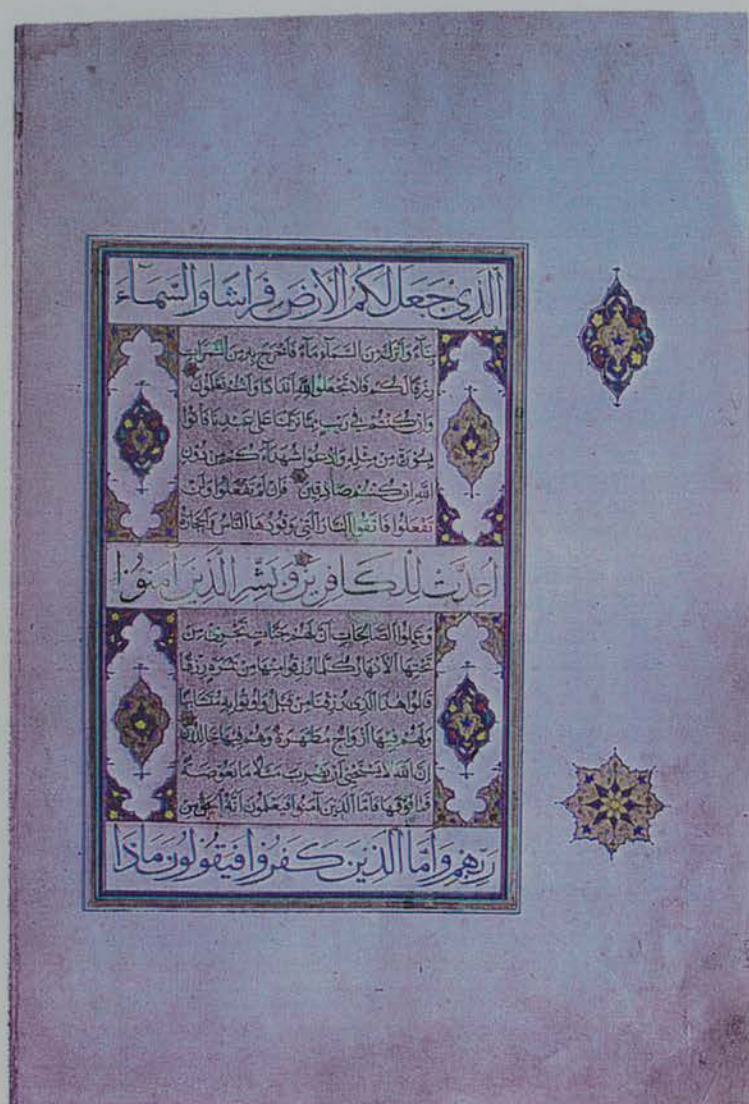 الَّذِي جَعَلَ لَكُمُ الْأَرْضَ فِرَاشًا وَالسَّمَاءَ
بِنَاءً وَأَنْزَلَ مِنَ السَّمَاءِ مَاءً فَأَخْرَجَ بِهِ مِنَ الثَّمَرَاتِ
رِزْقًا لَكُمْ فَلَا تَجْعَلُوا لِلَّهِ أَنْدَادًا وَأَنْتُمْ تَعْلَمُونَ
وَإِنْ كُنْتُمْ فِي رَيْبٍ مِمَّا نَزَّلْنَا عَلَى عَبْدِنَا فَأْتُوا
بِسُورَةٍ مِنْ مِثْلِهِ وَادْعُوا شُهَدَاءَكُمْ مِنْ دُونِ
اللَّهِ إِنْ كُنْتُمْ صَادِقِينَ فَإِنْ لَمْ تَفْعَلُوا وَلَنْ
تَفْعَلُوا فَاتَّقُوا النَّارَ الَّتِي وَقُودُهَا النَّاسُ وَالْحِجَارَةُ
أُعِدَّتْ لِلْكَافِرِينَ وَبَشِّرِ الَّذِينَ آمَنُوا
وَعَمِلُوا الصَّالِحَاتِ أَنَّ لَهُمْ جَنَّاتٍ تَجْرِي مِنْ
تَحْتِهَا الْأَنْهَارُ كُلَّمَا رُزِقُوا مِنْهَا مِنْ ثَمَرَةٍ رِزْقًا
قَالُوا هَذَا الَّذِي رُزِقْنَا مِنْ قَبْلُ وَأُتُوا بِهِ مُتَشَابِهًا
وَلَهُمْ فِيهَا أَزْوَاجٌ مُطَهَّرَةٌ وَهُمْ فِيهَا خَالِدُونَ
إِنَّ اللَّهَ لَا يَسْتَحْيِي أَنْ يَضْرِبَ مَثَلًا مَا بَعُوضَةً
فَمَا فَوْقَهَا فَأَمَّا الَّذِينَ آمَنُوا فَيَعْلَمُونَ أَنَّهُ الْحَقُّ مِنْ
رَبِّهِمْ وَأَمَّا الَّذِينَ كَفَرُوا فَيَقُولُونَ مَاذَا